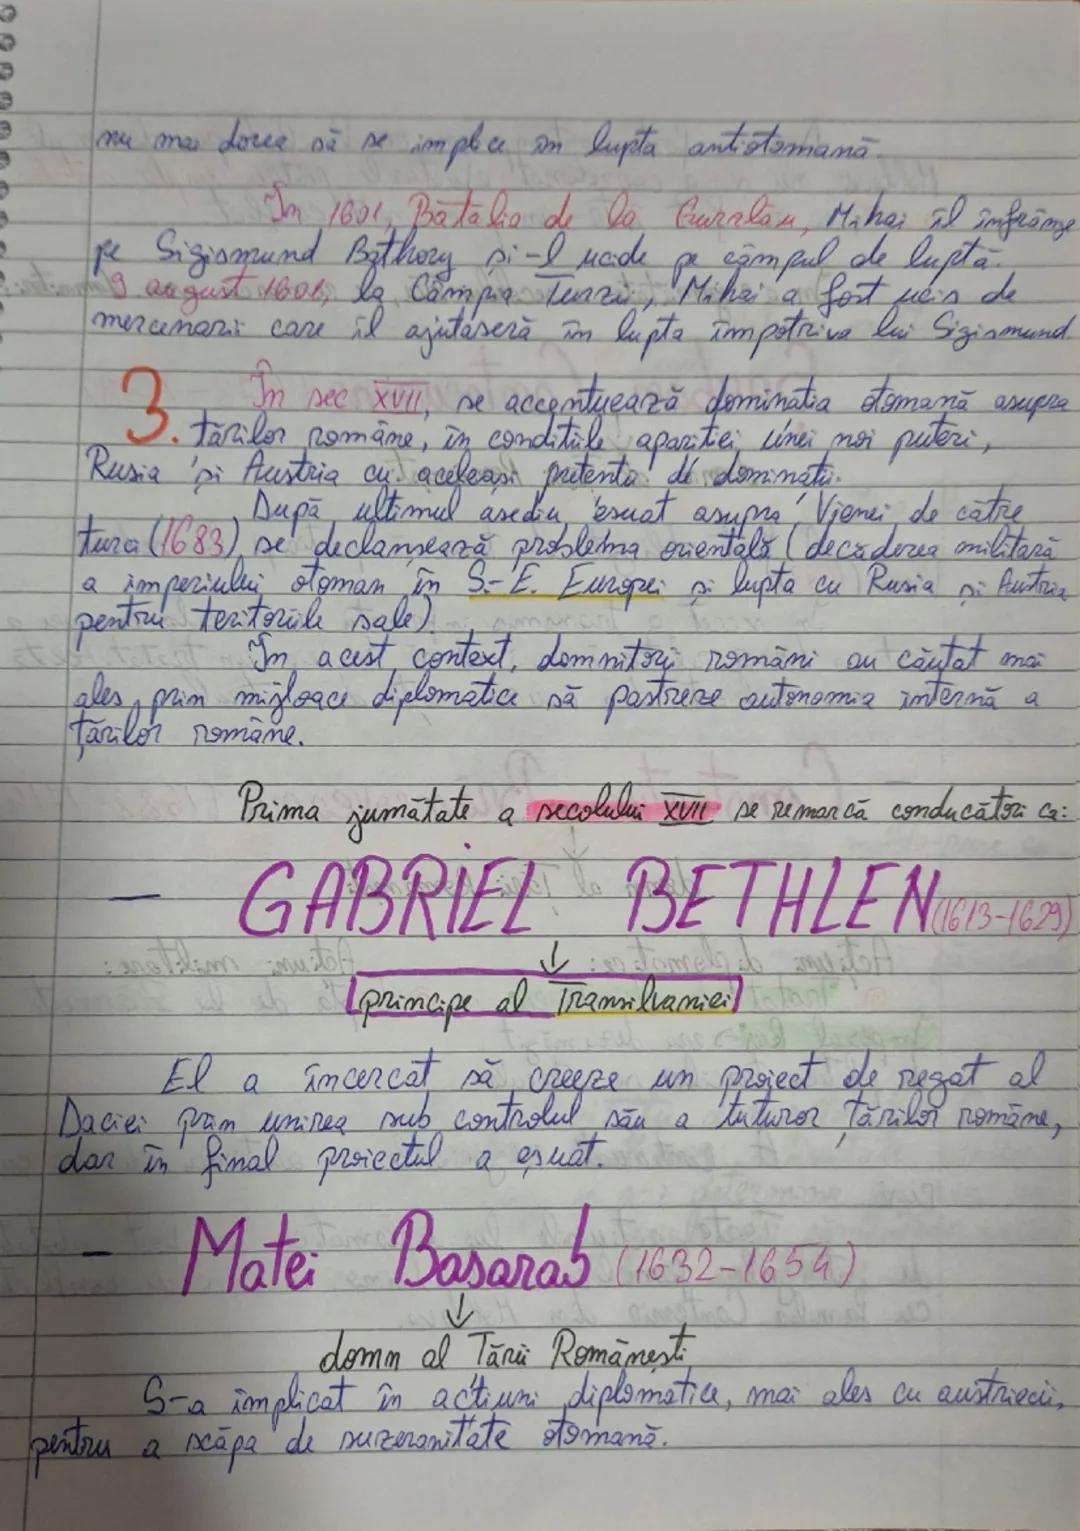 nu mai dorea să se implice în lupta antiotomană.
În 1601, Bătălia de la Gurslău, Mihai îl înfrânge
pe Sigismund Bathory și-l ucide pe câmpul de luptă.
9 august 1601, la Câmpia Turzii, Mihai a fost ucis de
mercenarii care îl ajutaseră în lupta împotriva lui Sigismund.
3. În sec XVII, se accentuează dominația otomană asupra
țărilor române, în condițiile apariției unei noi puteri,
Rusia și Austria cu aceleași pretenții de dominații.
După ultimul asediu eșuat asupra Vienei de către
turci (1683), se declanșează problema orientală (decăderea militară
a imperiului otoman în S.-E. Europei și lupta cu Rusia și Austria
pentru teritoriile sale).
În acest context, domnitorii români au căutat mai
ales, prin mijloace diplomatice să păstreze autonomia internă a
țărilor române.
Prima jumătate a secolului XVII se remarcă conducători ca:
- GABRIEL BETHLEN (1613-1629)
↓
principe al Transilvaniei
El a încercat să creeze un proiect de regat al
Daciei prin unirea sub controlul său a tuturor țărilor române,
dar în final proiectul a eșuat.
- Matei Basarab (1632-1654)
↓
domn al Țării Românești
S-a implicat în acțiuni diplomatice, mai ales cu austriecii,
pentru a scăpa de suzeranitate otomană.